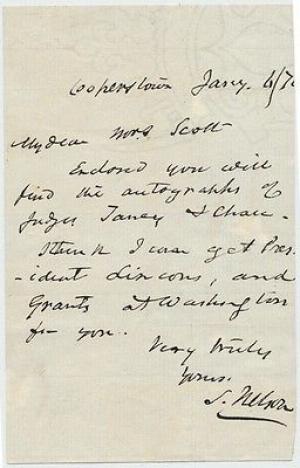 Cooperstown Jany. 6/7
My dear Mrs Scott
Enclosed you will
find the autographs of
Judges Taney & Chase -
I think I can get Pres-
-ident Lincons, and
Grants at Washington
for you.
Very truly
Yours.
S. Nelson